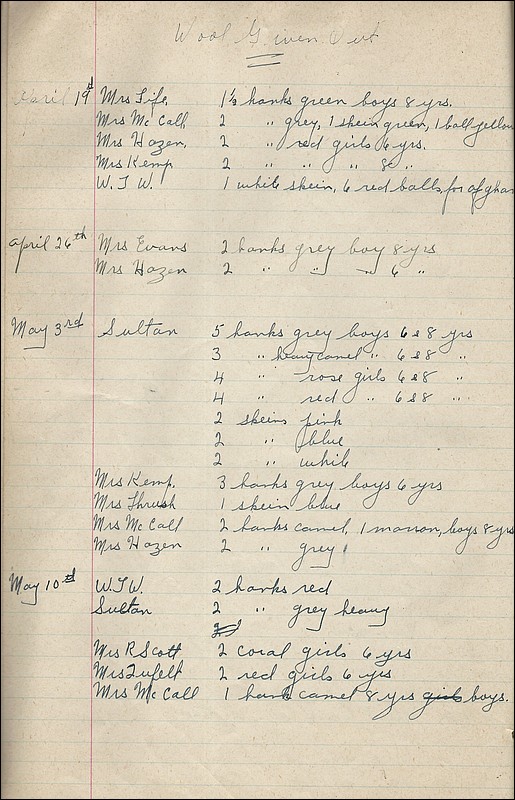 Wool Given Out
April 19th Mrs Fife, 1½ hanks green boys 8 yrs.
Mrs McCall 2 " grey, 1 skein green, 1 ball yellow
Mrs Hazen, 2 " red girls 6 yrs.
Mrs Kemp 2 " " " 8 "
W.T.W. 1 white skein, 6 red balls, for afghan
April 26th Mrs Evans 2 hanks grey boy 8 yrs
Mrs Hazen 2 " " " 6 "
May 3rd Sultan 5 hanks grey boys 6 & 8 yrs
3 " heavy camel " 6 & 8 "
4 " rose girls 6 & 8 "
4 " red " 6 & 8 "
2 skeins pink
2 " blue
2 " white
Mrs Kemp. 3 hanks grey boys 6 yrs
Mrs Thrush 1 skein blue
Mrs McCall 2 hanks camel, 1 maroon, boys 8 yrs
Mrs Hazen 2 " grey
May 10th W.T.W. 2 hanks red
Sultan 2 " grey heavy
Mrs R Scott 2 coral girls 6 yrs
Mrs Zufelt 2 red girls 6 yrs
Mrs McCall 1 hank camel 8 yrs girls boys.